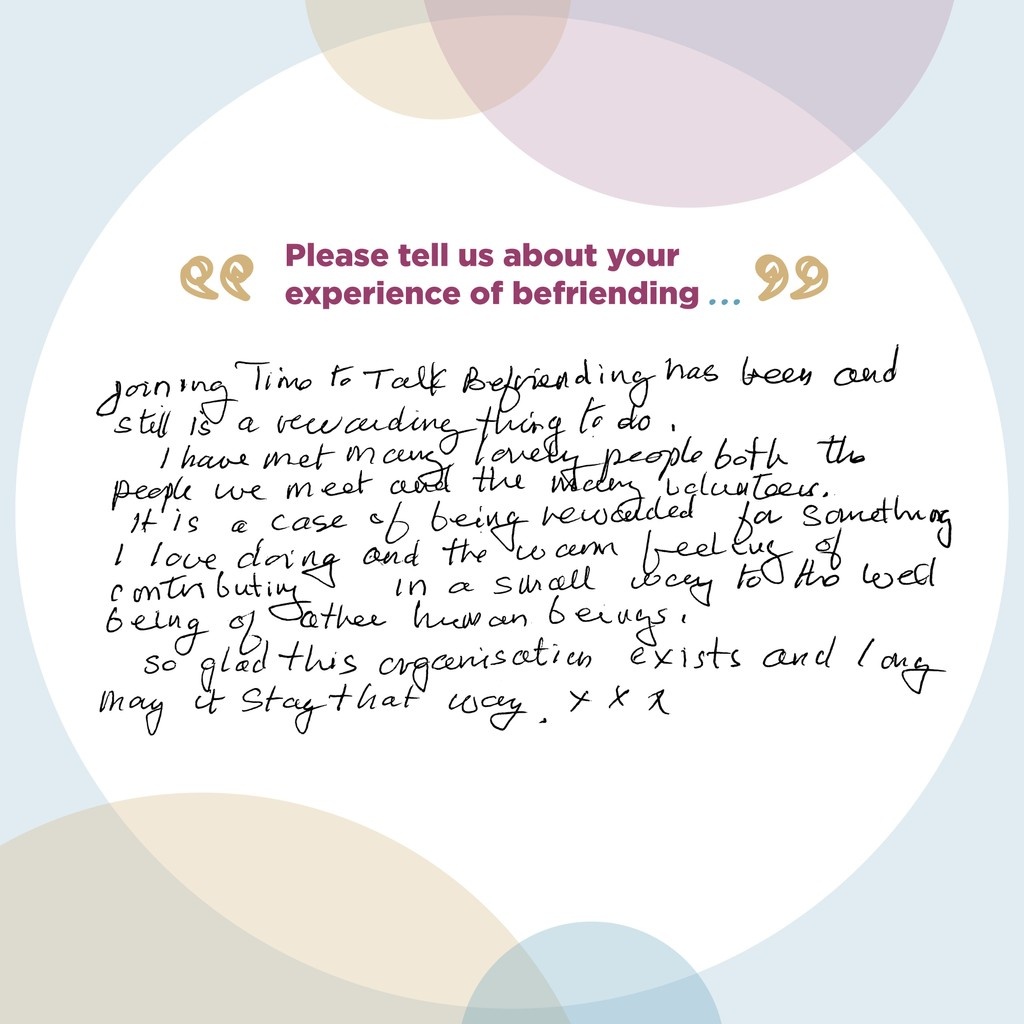 Please tell us about your
experience of befriending ...
Joining Time to Talk Befriending has been and
still is a rewarding thing to do.
I have met many lovely people both the
people we meet and the many volunteers.
It is a case of being rewarded for something
I love doing and the warm feeling of
contributing in a small way to the well
being of other human beings.
So glad this organisation exists and long
may it stay that way. x x x